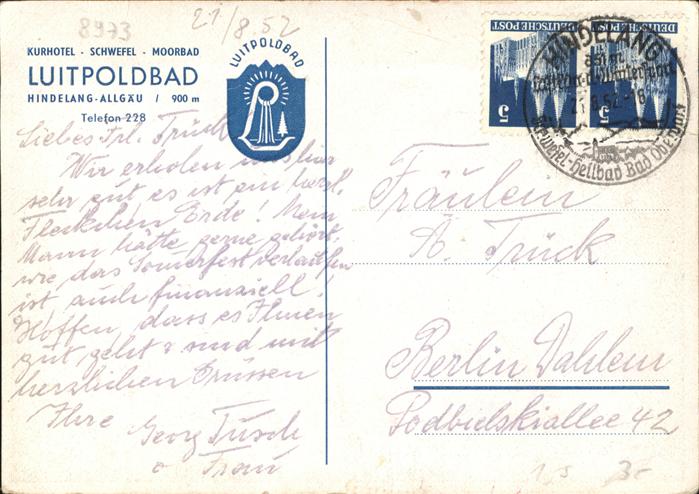 8973
21/8.52
KURHOTEL - SCHWEFEL - MOORBAD
LUITPOLDBAD
HINDELANG-ALLGÄU / 900 m
Telefon 228
LUITPOLDBAD
Liebes Frl. Trück
Wir erholen uns hier
sehr gut es ist ein herzl.
Fleckchen Erde! Mein
Mann hätte gerne gehört
wie das Somerfest verlaufen
ist auch finanziell!
Hoffen, dass es Ihnen
gut geht & sind mit
herzlichen Grüssen
Ihre
Georg Tusch
& Frau
DEUTSCHE POST
5
DEUTSCHE POST
5
HINDELANG
21.8.52.-18
Schwefel-Heilbad Bad Oberdorf
Fräulein
A. Trück
Berlin Dahlem
Podbielskiallee 42